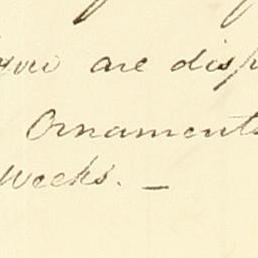 you are disp
Ornaments
Weeks. —